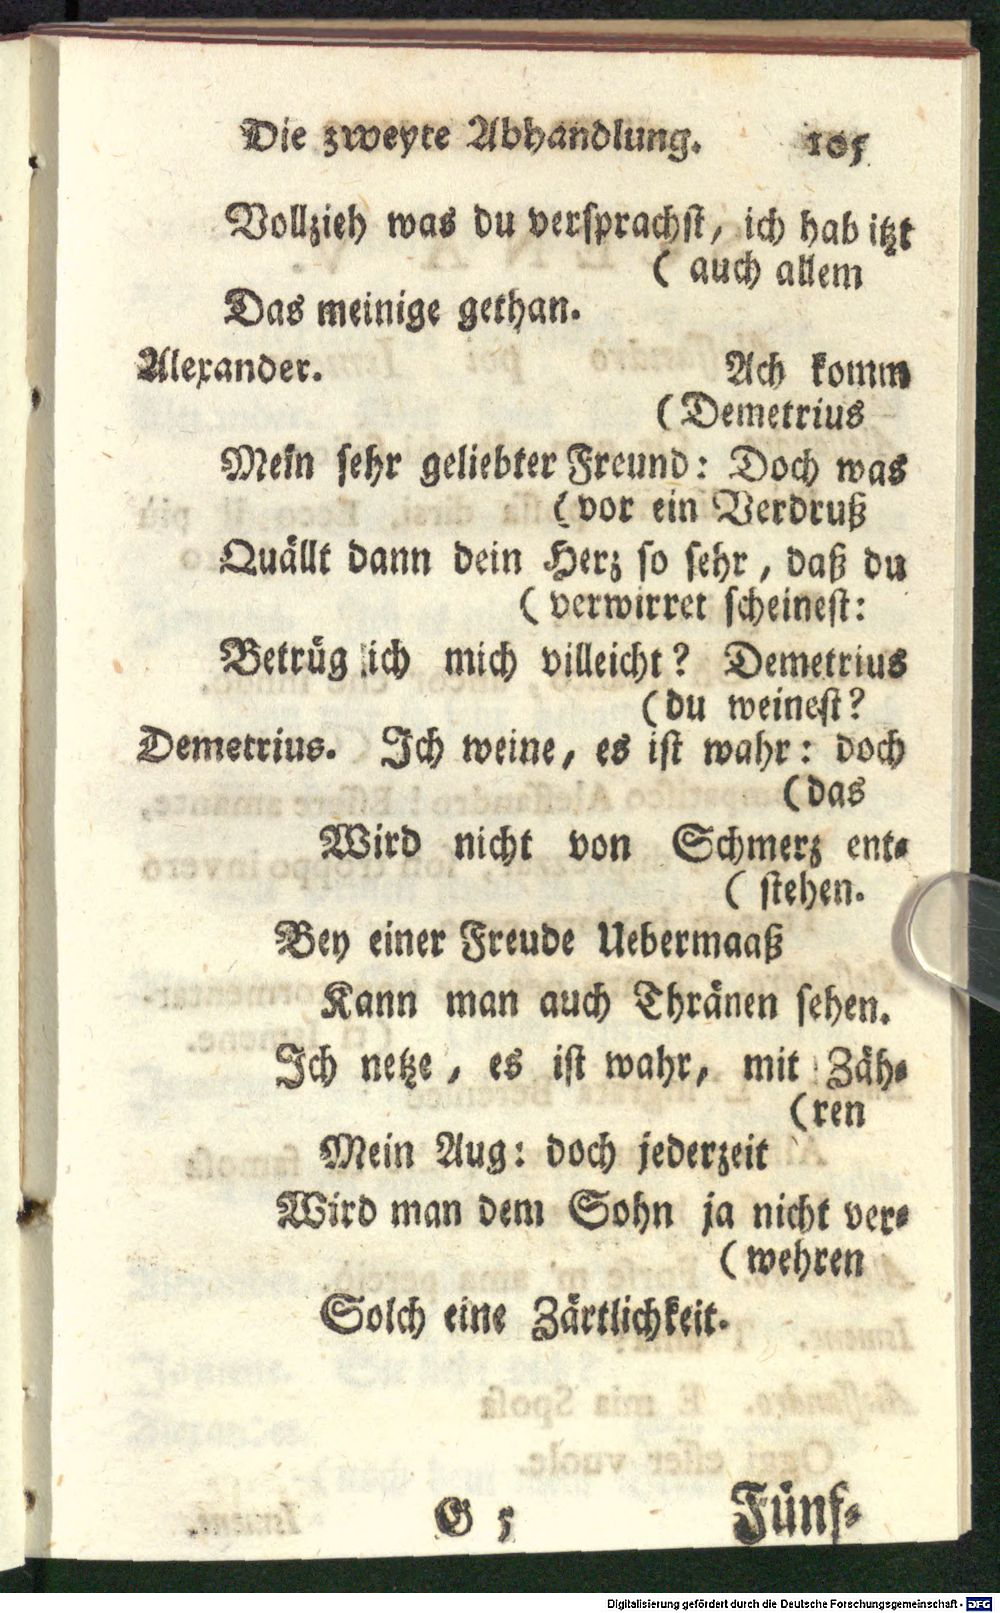 Die zweyte Abhandlung. 105
Vollzieh was du versprachst, ich hab itzt
( auch allem
Das meinige gethan.
Alexander. Ach komm
( Demetrius
Mein sehr geliebter Freund: Doch was
( vor ein Verdruß
Quällt dann dein Herz so sehr, daß du
( verwirret scheinest:
Betrüg ich mich villeicht? Demetrius
( du weinest?
Demetrius. Ich weine, es ist wahr: doch
( das
Wird nicht von Schmerz ent-
( stehen.
Bey einer Freude Uebermaaß
Kann man auch Thränen sehen.
Ich netze, es ist wahr, mit Zäh-
( ren
Mein Aug: doch jederzeit
Wird man dem Sohn ja nicht ver-
( wehren
Solch eine Zärtlichkeit.
G 5 Fünf-
Digitalisierung gefördert durch die Deutsche Forschungsgemeinschaft - DFG